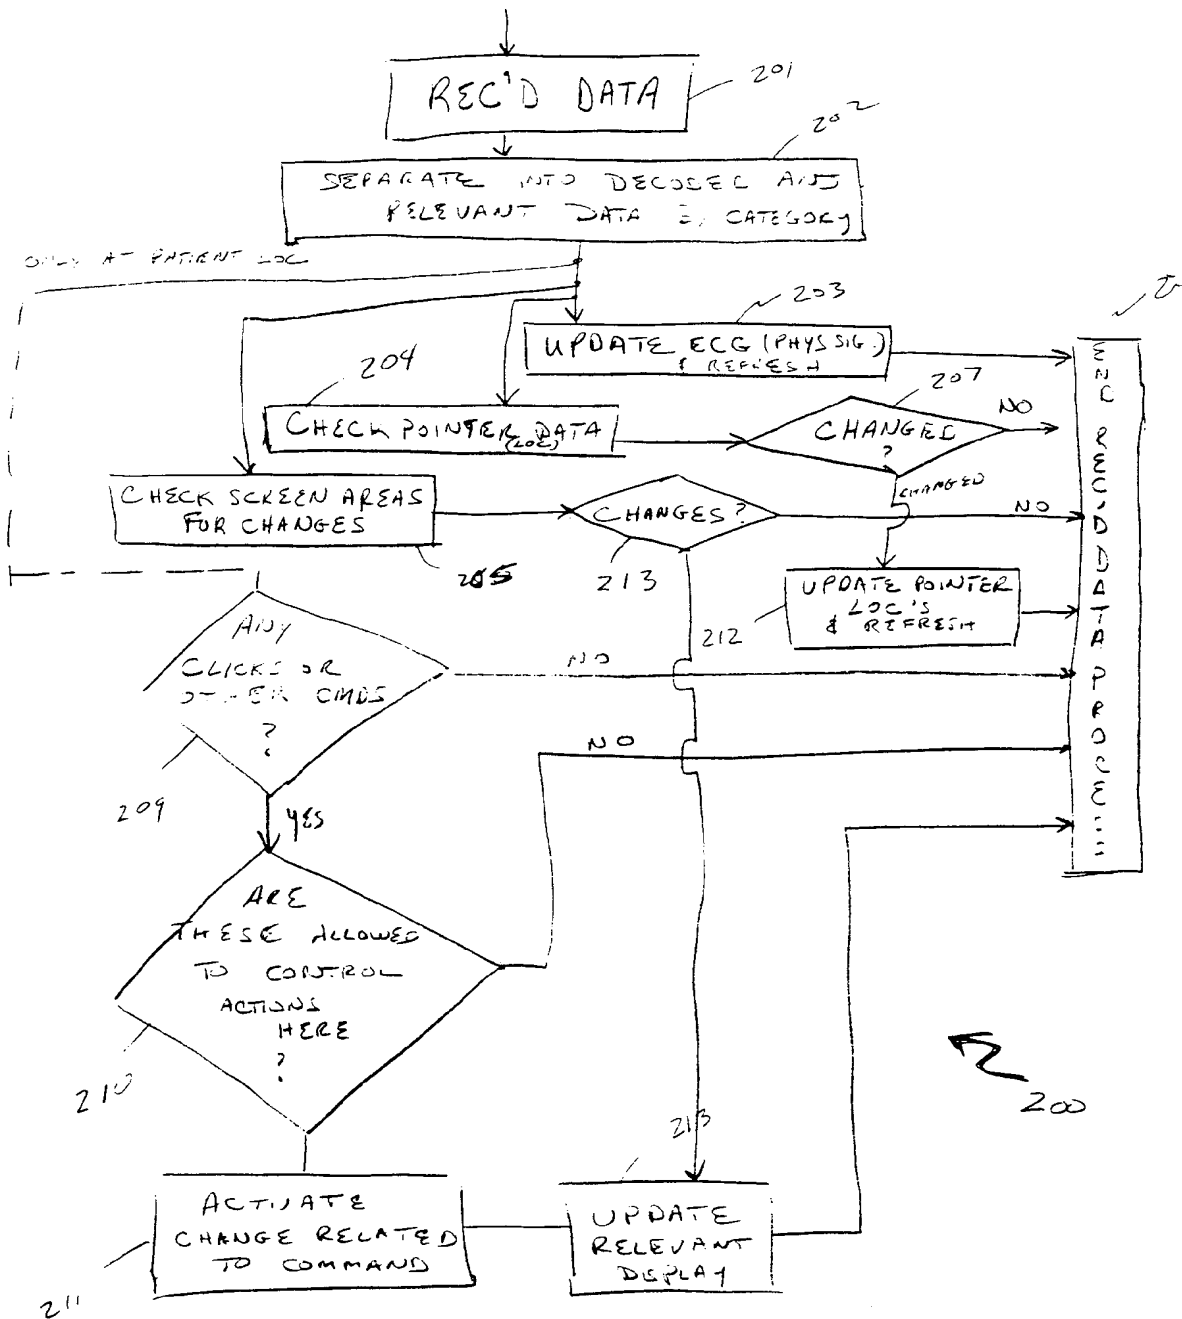 REC'D DATA
201
202
SEPARATE INTO DECODED AND
RELEVANT DATA CATEGORY
ONLY AT PATIENT LOC
203
UPDATE ECG (PHYS SIG.)
& REFRESH
204
CHECK POINTER DATA
(LOC)
207
CHANGED
?
NO
CHANGED
CHECK SCREEN AREAS
FOR CHANGES
205
CHANGES?
213
NO
UPDATE POINTER
LOC'S
& REFRESH
212
END REC'D DATA
ANY
CLICKS OR
OTHER CMDS
?
NO
209
YES
NO
ARE
THESE ALLOWED
TO CONTROL
ACTIONS
HERE
?
210
200
213
ACTIVATE
CHANGE RELATED
TO COMMAND
211
UPDATE
RELEVANT
DISPLAY